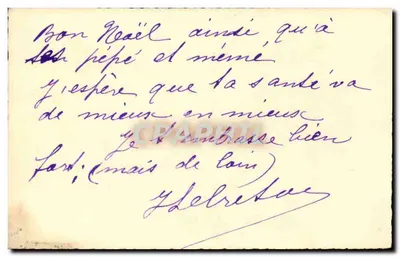 Bon Noël ainsi qu'à
ton pépé et mémé
J'espère que ta santé va
de mieux en mieux
Je t'embrasse bien
fort. (mais de loin)